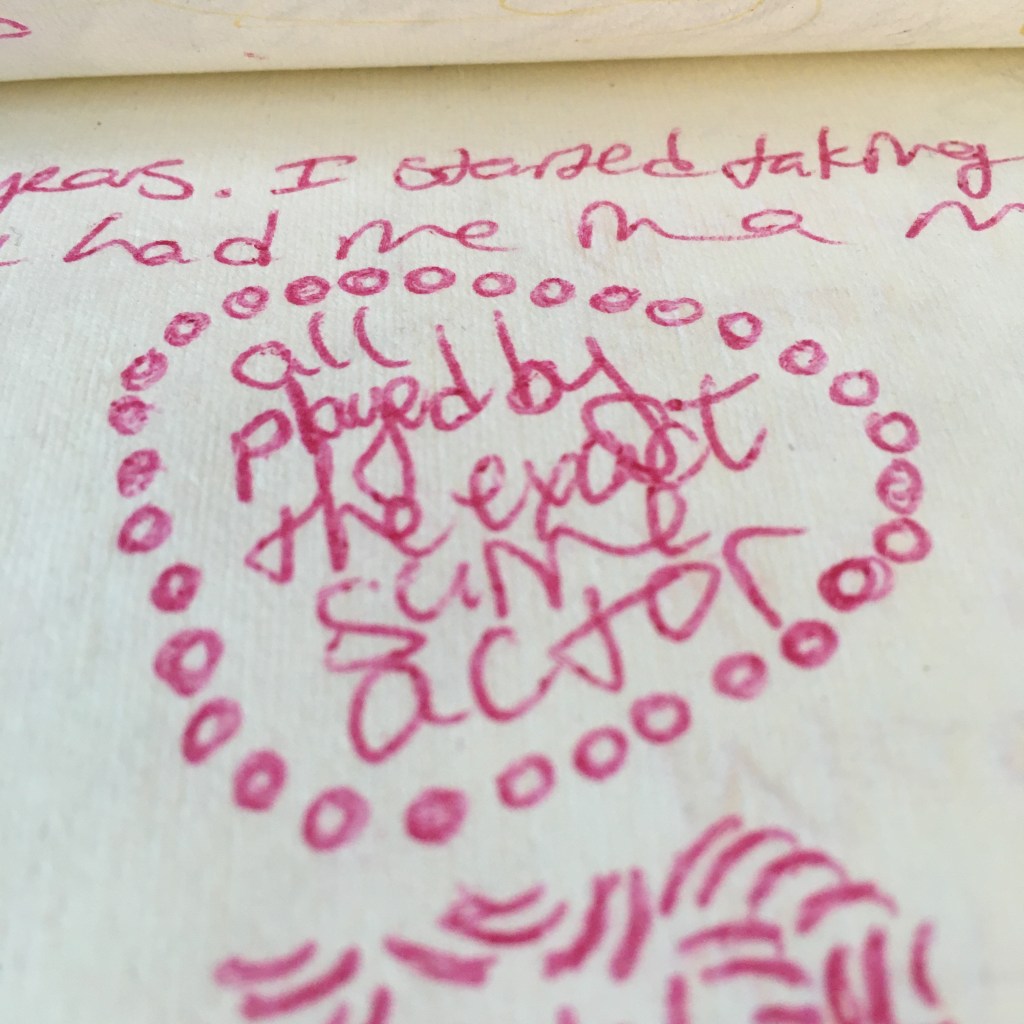 years. I started taking
had me in a
all
played by
the exact
same
actor